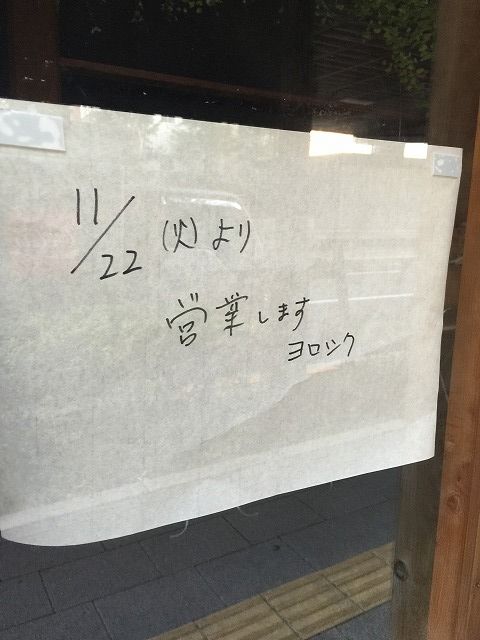 11/22 (火)より
営業します
ヨロシク